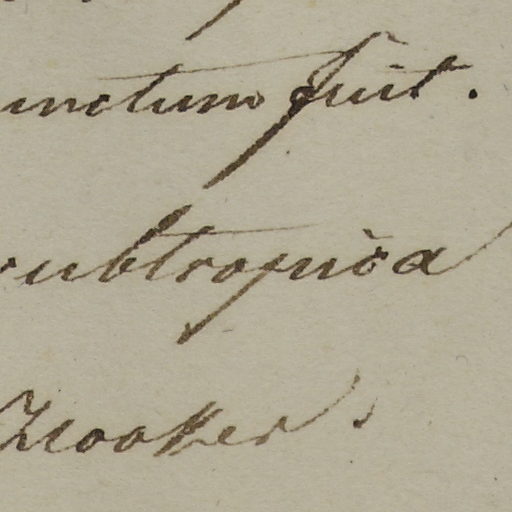 unctum fuit.
subtropica
Hooker.